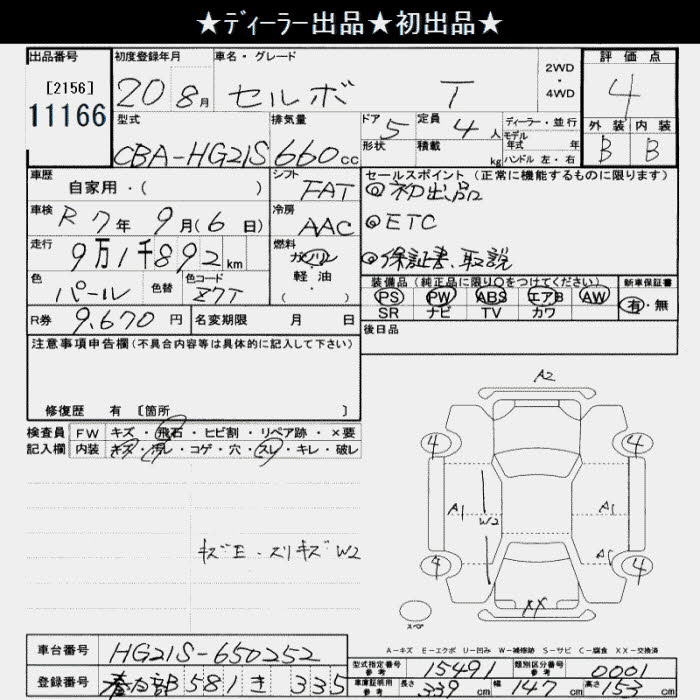 ★ディーラー出品★初出品★
出品番号 初度登録年月 車名・グレード 評価点
[2156] 20 8月 セルボ T 2WD・4WD 4
11166
型式 排気量 ドア 5 定員 4人 ディーラー・並行 外装 内装
CBA-HG21S 660cc 形状 積載 kg モデル年式 年 B B
ハンドル 左・右
車歴 シフト セールスポイント (正常に機能するものに限ります)
自家用・( ) FAT ◎初出品
車検 R7年9月(6日) 冷房 AAC ◎ETC
走行 9万1千892km 燃料 ガソリン ◎保証書、取説
軽・油
・
( )
色 パール 色替 色コード Z7T
装備品 (純正品に限り○をつけてください) 新車保証書
PS PW ABS エアB AW 有・無
SR ナビ TV カワ
R券 9,670円 名変期限 月 日 後日品
注意事項申告欄(不具合内容等は具体的に記入して下さい)
修復歴 有 [箇所 ]
検査員 FW キズ・飛石・ヒビ割・リペア跡・×要
記入欄 内装 キズ・汚レ・コゲ・穴・スレ・キレ・破レ
キズE・スリキズW2
A2
4 4
A1 W2 A1
4 4
XX
スペア
A-キズ E-エクボ U-凹み W-補修跡 S-サビ C-腐食 XX-交換済
車台番号 HG21S-650252
型式指定番号 参考 15491 類別区分番号 参考 0001
登録番号 春日部 581 き 335
車庫証明用 参考 長さ 339cm 幅 147cm 高さ 153cm